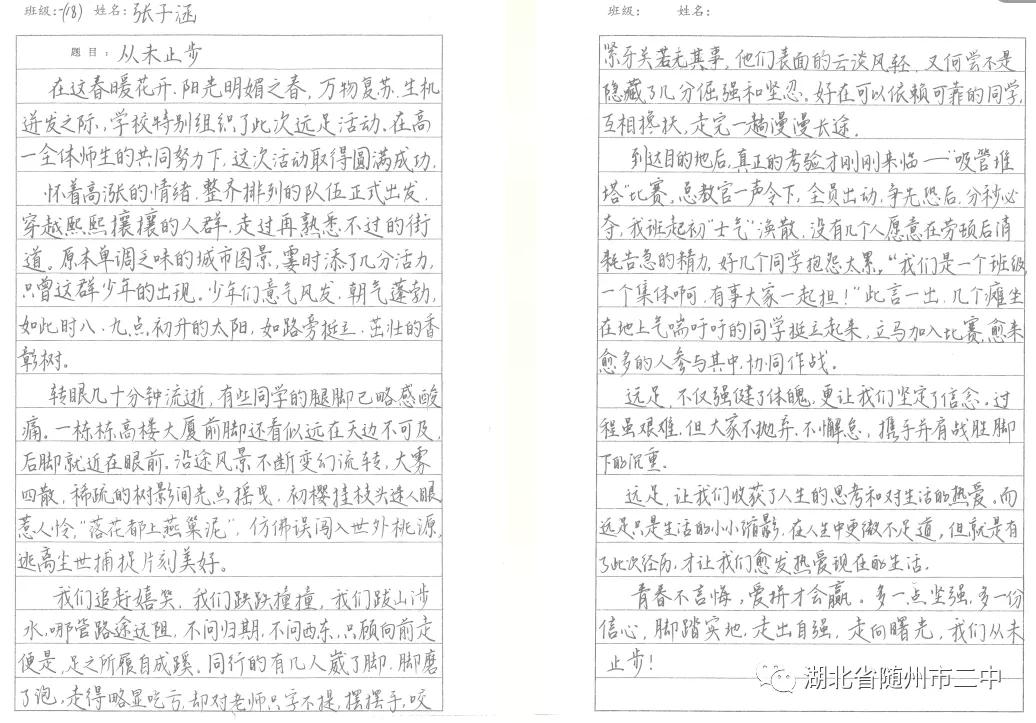 班级:一(18) 姓名:张子涵
题目:从未止步
在这春暖花开、阳光明媚之春,万物复苏、生机
迸发之际,学校特别组织了此次远足活动。在高
一全体师生的共同努力下,这次活动取得圆满成功。
怀着高涨的情绪,整齐排列的队伍正式出发,
穿越熙熙攘攘的人群,走过再熟悉不过的街
道。原本单调乏味的城市图景,霎时添了几分活力,
只曾这群少年的出现。少年们意气风发、朝气蓬勃,
如此时八、九点初升的太阳,如路旁挺立、茁壮的香
彰树。
转眼几十分钟流逝,有些同学的腿脚已略感酸
痛。一栋栋高楼大厦前脚还看似远在天边不可及,
后脚就近在眼前。沿途风景不断变幻流转,大雾
四散,稀疏的树影间光点摇曳,初樱挂枝头迷人眼
惹人怜,“落花都上燕巢泥”,仿佛误闯入世外桃源,
逃离尘世捕捉片刻美好。
我们追赶嬉笑,我们跌跌撞撞,我们跋山涉
水,哪管路途远阻,不问归期,不问西东,只顾向前走
便是,足之所履自成蹊。同行的有几人崴了脚、脚磨
了泡,走得略显吃亏,却对老师只字不提,摆摆手,咬
班级: 姓名:
紧牙关若无其事,他们表面的云淡风轻,又何尝不是
隐藏了几分倔强和坚忍。好在可以依赖可靠的同学,
互相搀扶,走完一趟漫漫长途。
到达目的地后,真正的考验才刚刚来临——“吸管堆
塔”比赛,总教官一声令下,全员出动,争先恐后,分秒必
夺,我班起初“士气”涣散,没有几个人愿意在劳顿后消
耗告急的精力,好几个同学抱怨太累。“我们是一个班级
一个集体啊,有事大家一起担!”此言一出,几个瘫坐
在地上气喘吁吁的同学挺立起来,立马加入比赛,愈来
愈多的人参与其中,协同作战。
远足,不仅强健了体魄,更让我们坚定了信念。过
程虽艰难,但大家不抛弃、不懈怠,携手并肩战胜脚
下的沉重。
远足,让我们收获了人生的思考和对生活的热爱。而
远足只是生活的小小缩影,在人生中更微不足道,但就是有
了此次经历,才让我们愈发热爱现在的生活。
青春不言悔,爱拼才会赢。多一点坚强,多一份
信心,脚踏实地,走出自强,走向曙光,我们从未
止步!
湖北省随州市二中